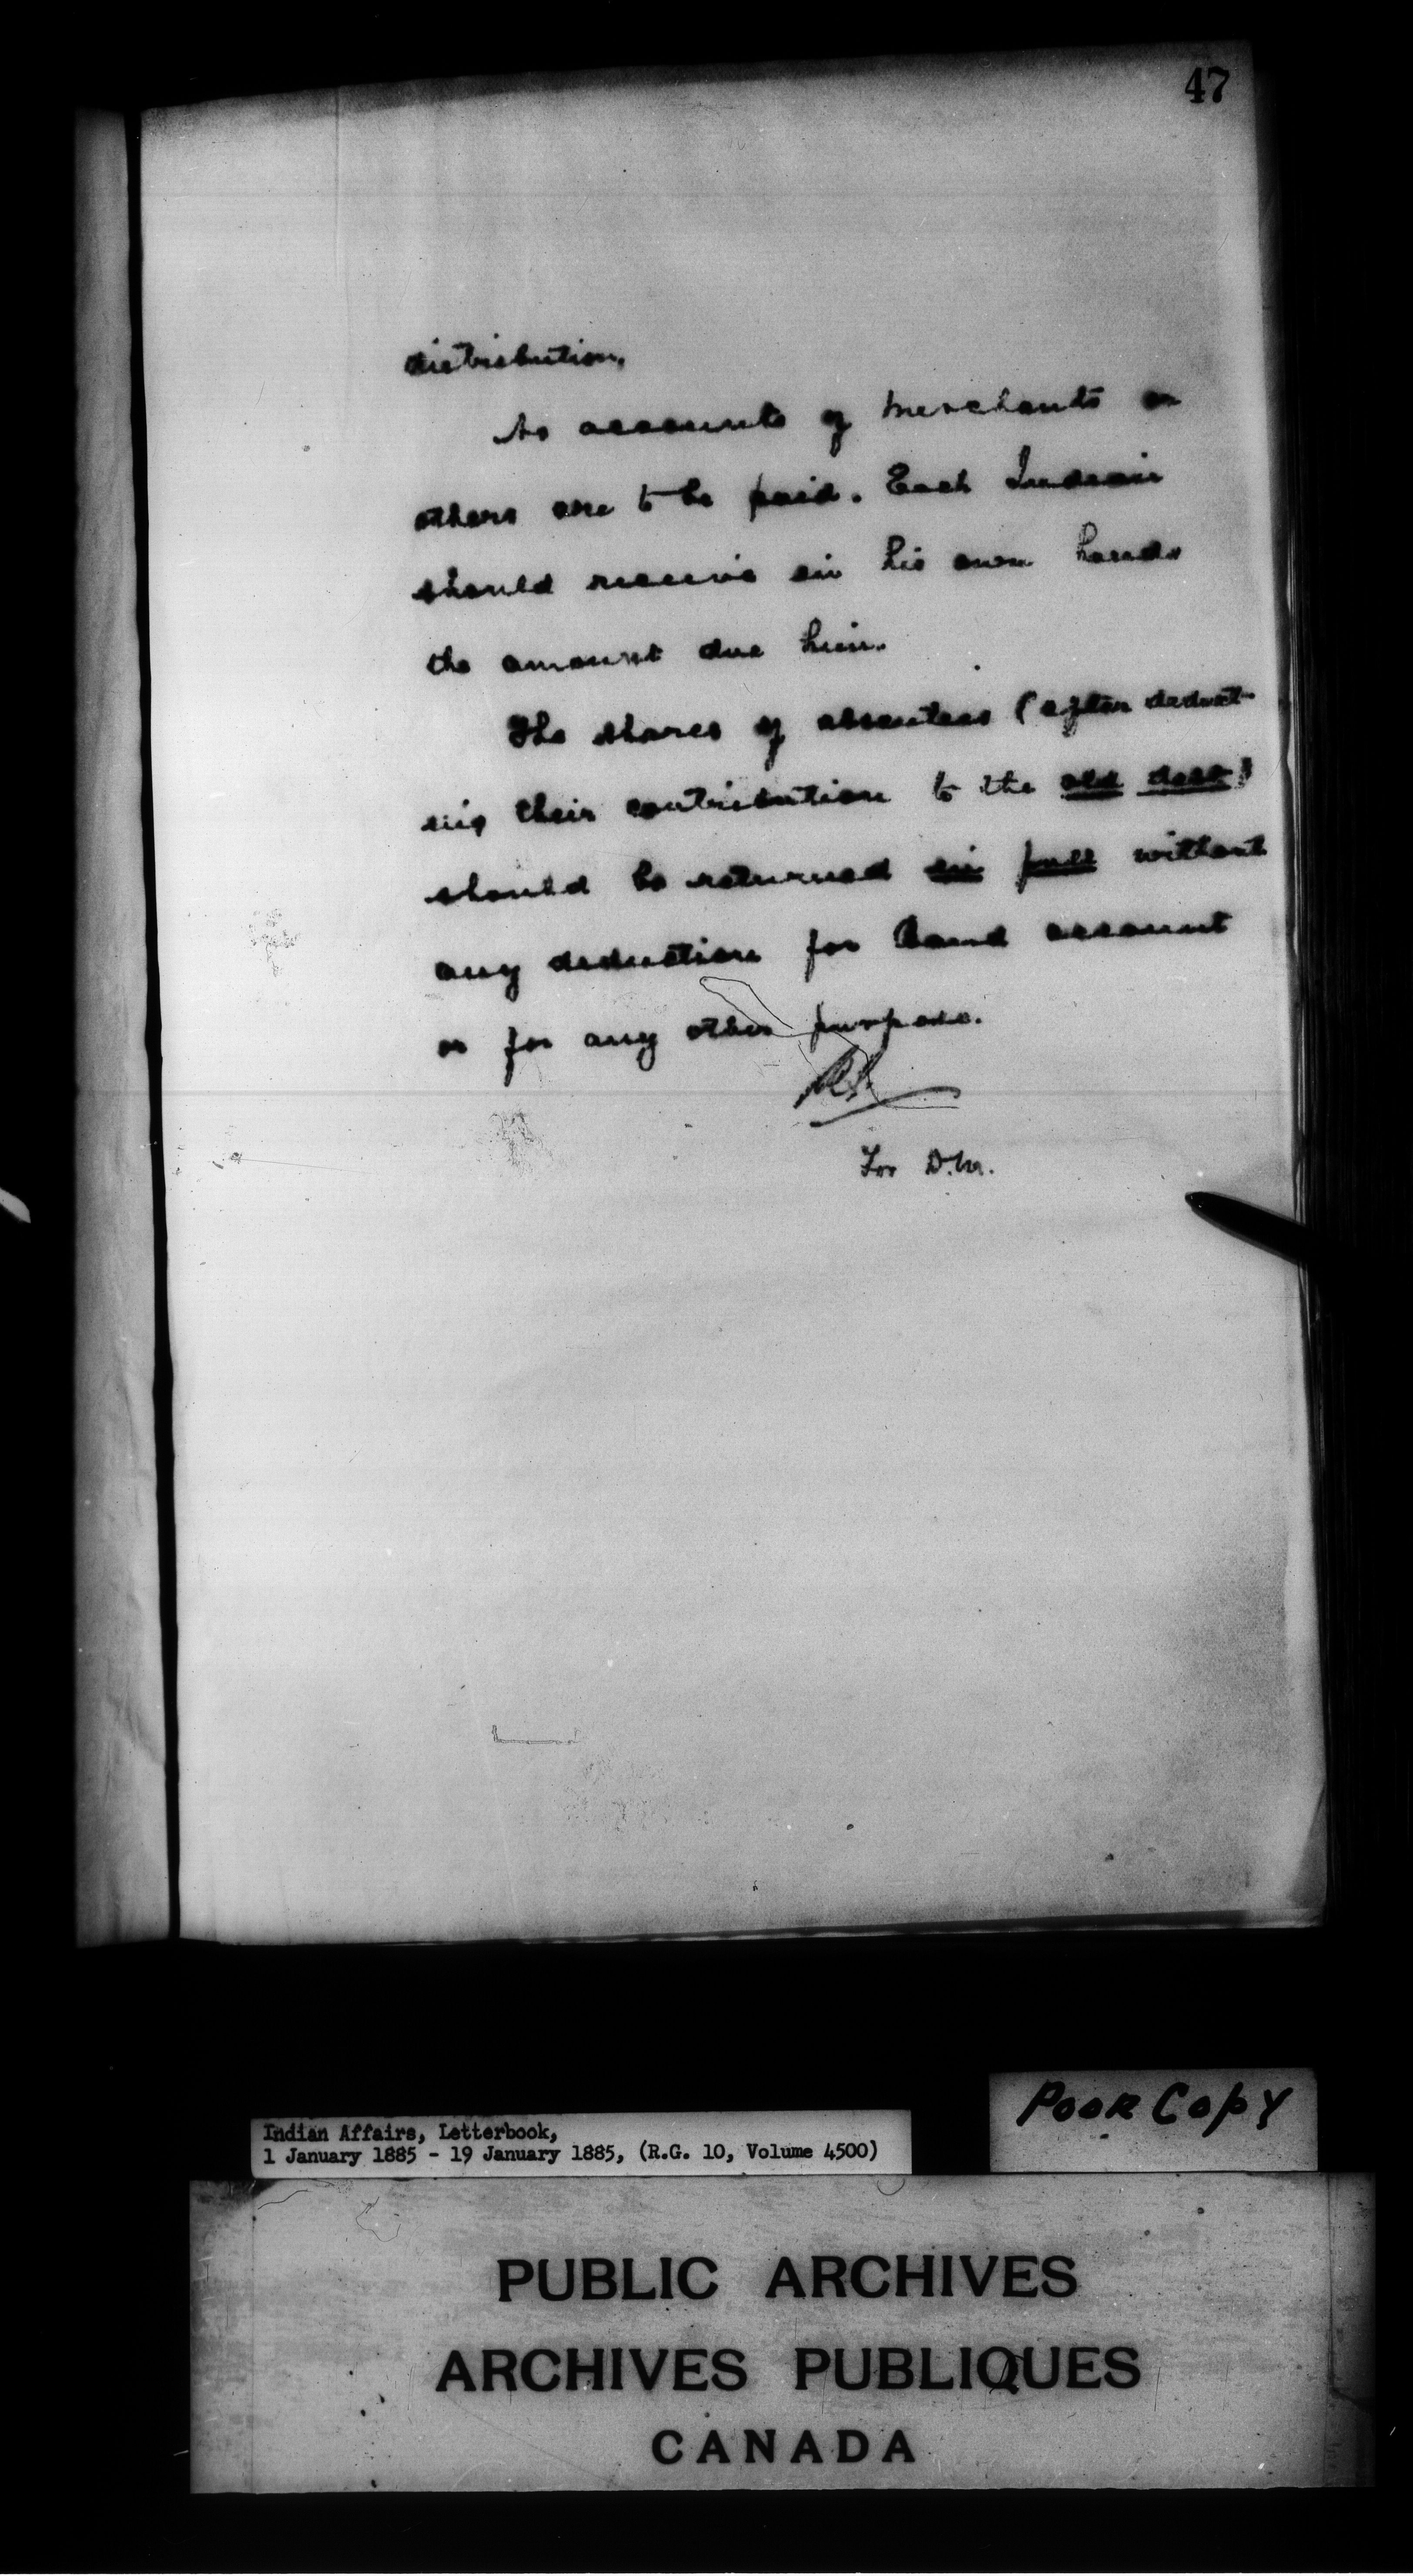 47
distribution.
No accounts of merchants or
others are to be paid. Each Indian
should receive in his own hands
the amount due him.
The shares of absentees (after deduct-
ing their contribution to the old debt)
should be returned in full without
any deduction for Band account
or for any other purpose.
For D.M.
POOR COPY
Indian Affairs, Letterbook,
1 January 1885 - 19 January 1885, (R.G. 10, Volume 4500)
PUBLIC ARCHIVES
ARCHIVES PUBLIQUES
CANADA